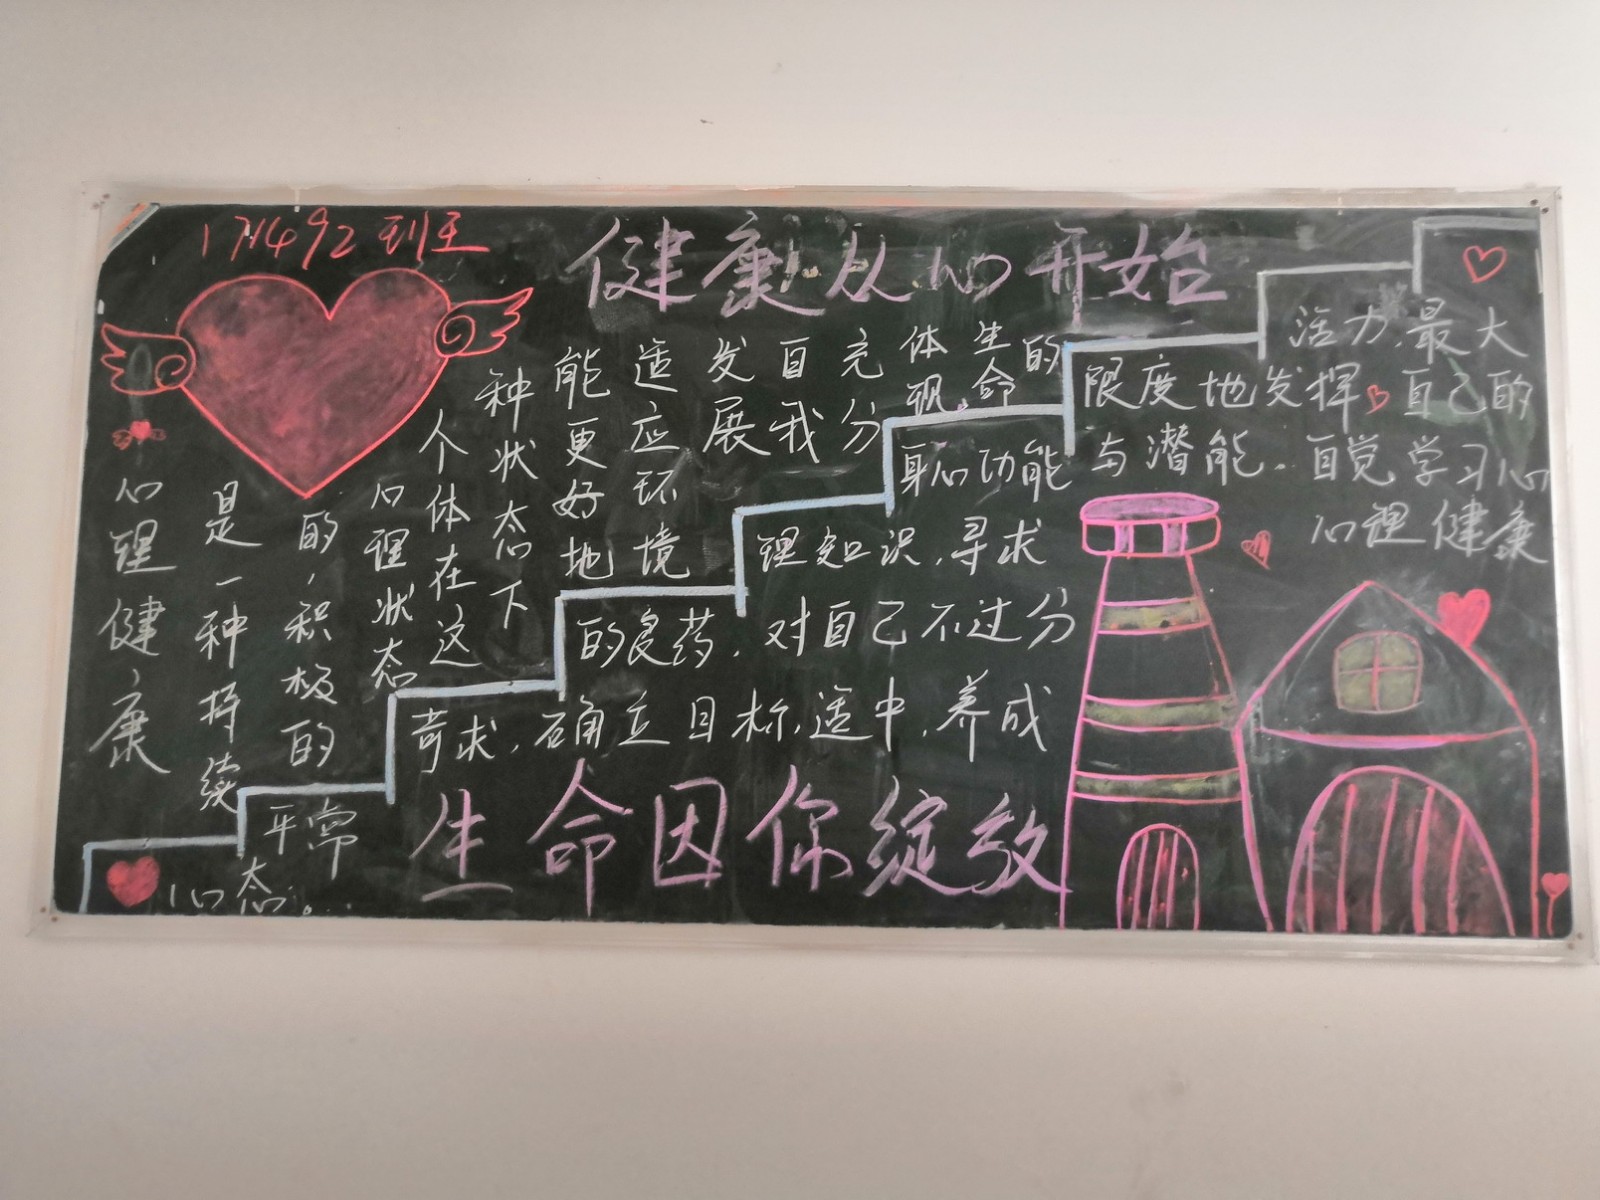 171492 到至
健康从心开始
心理健康
是一种持续
的,积极的
心理状态
个体在这
种状态下
能更好地
适应环境
发展
自我
充分
体现
生命
的
活力,最大
限度地发挥自己的
身心功能与潜能.自觉学习心
理知识,寻求心理健康
的良药,对自己不过分
苛求,确立目标,适中,养成
平常
心态。...
生命因你绽放